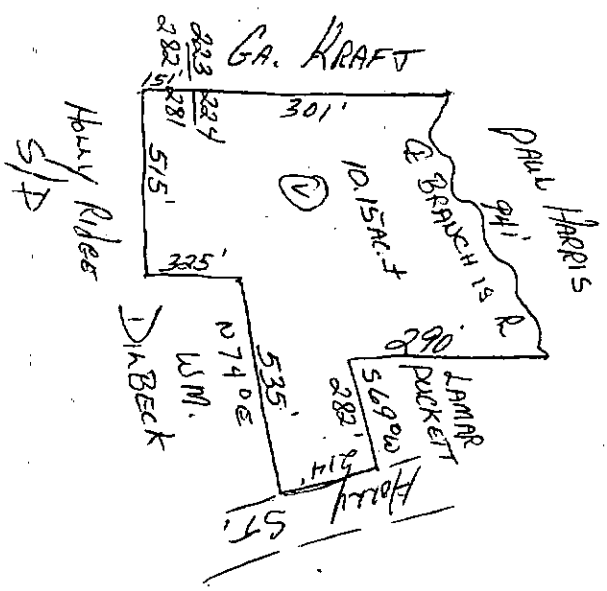 GA. KRAFT
223 224
282 281
151'
301'
PAUL HARRIS
941'
℄ BRANCH IS R
10.15 AC. ±
515'
HOLLY RIDGE
S/D
325'
290'
LAMAR
PUCKETT
S69°W
282'
535'
N74°E
WM.
DINBECK
214'
HOLLY
ST.